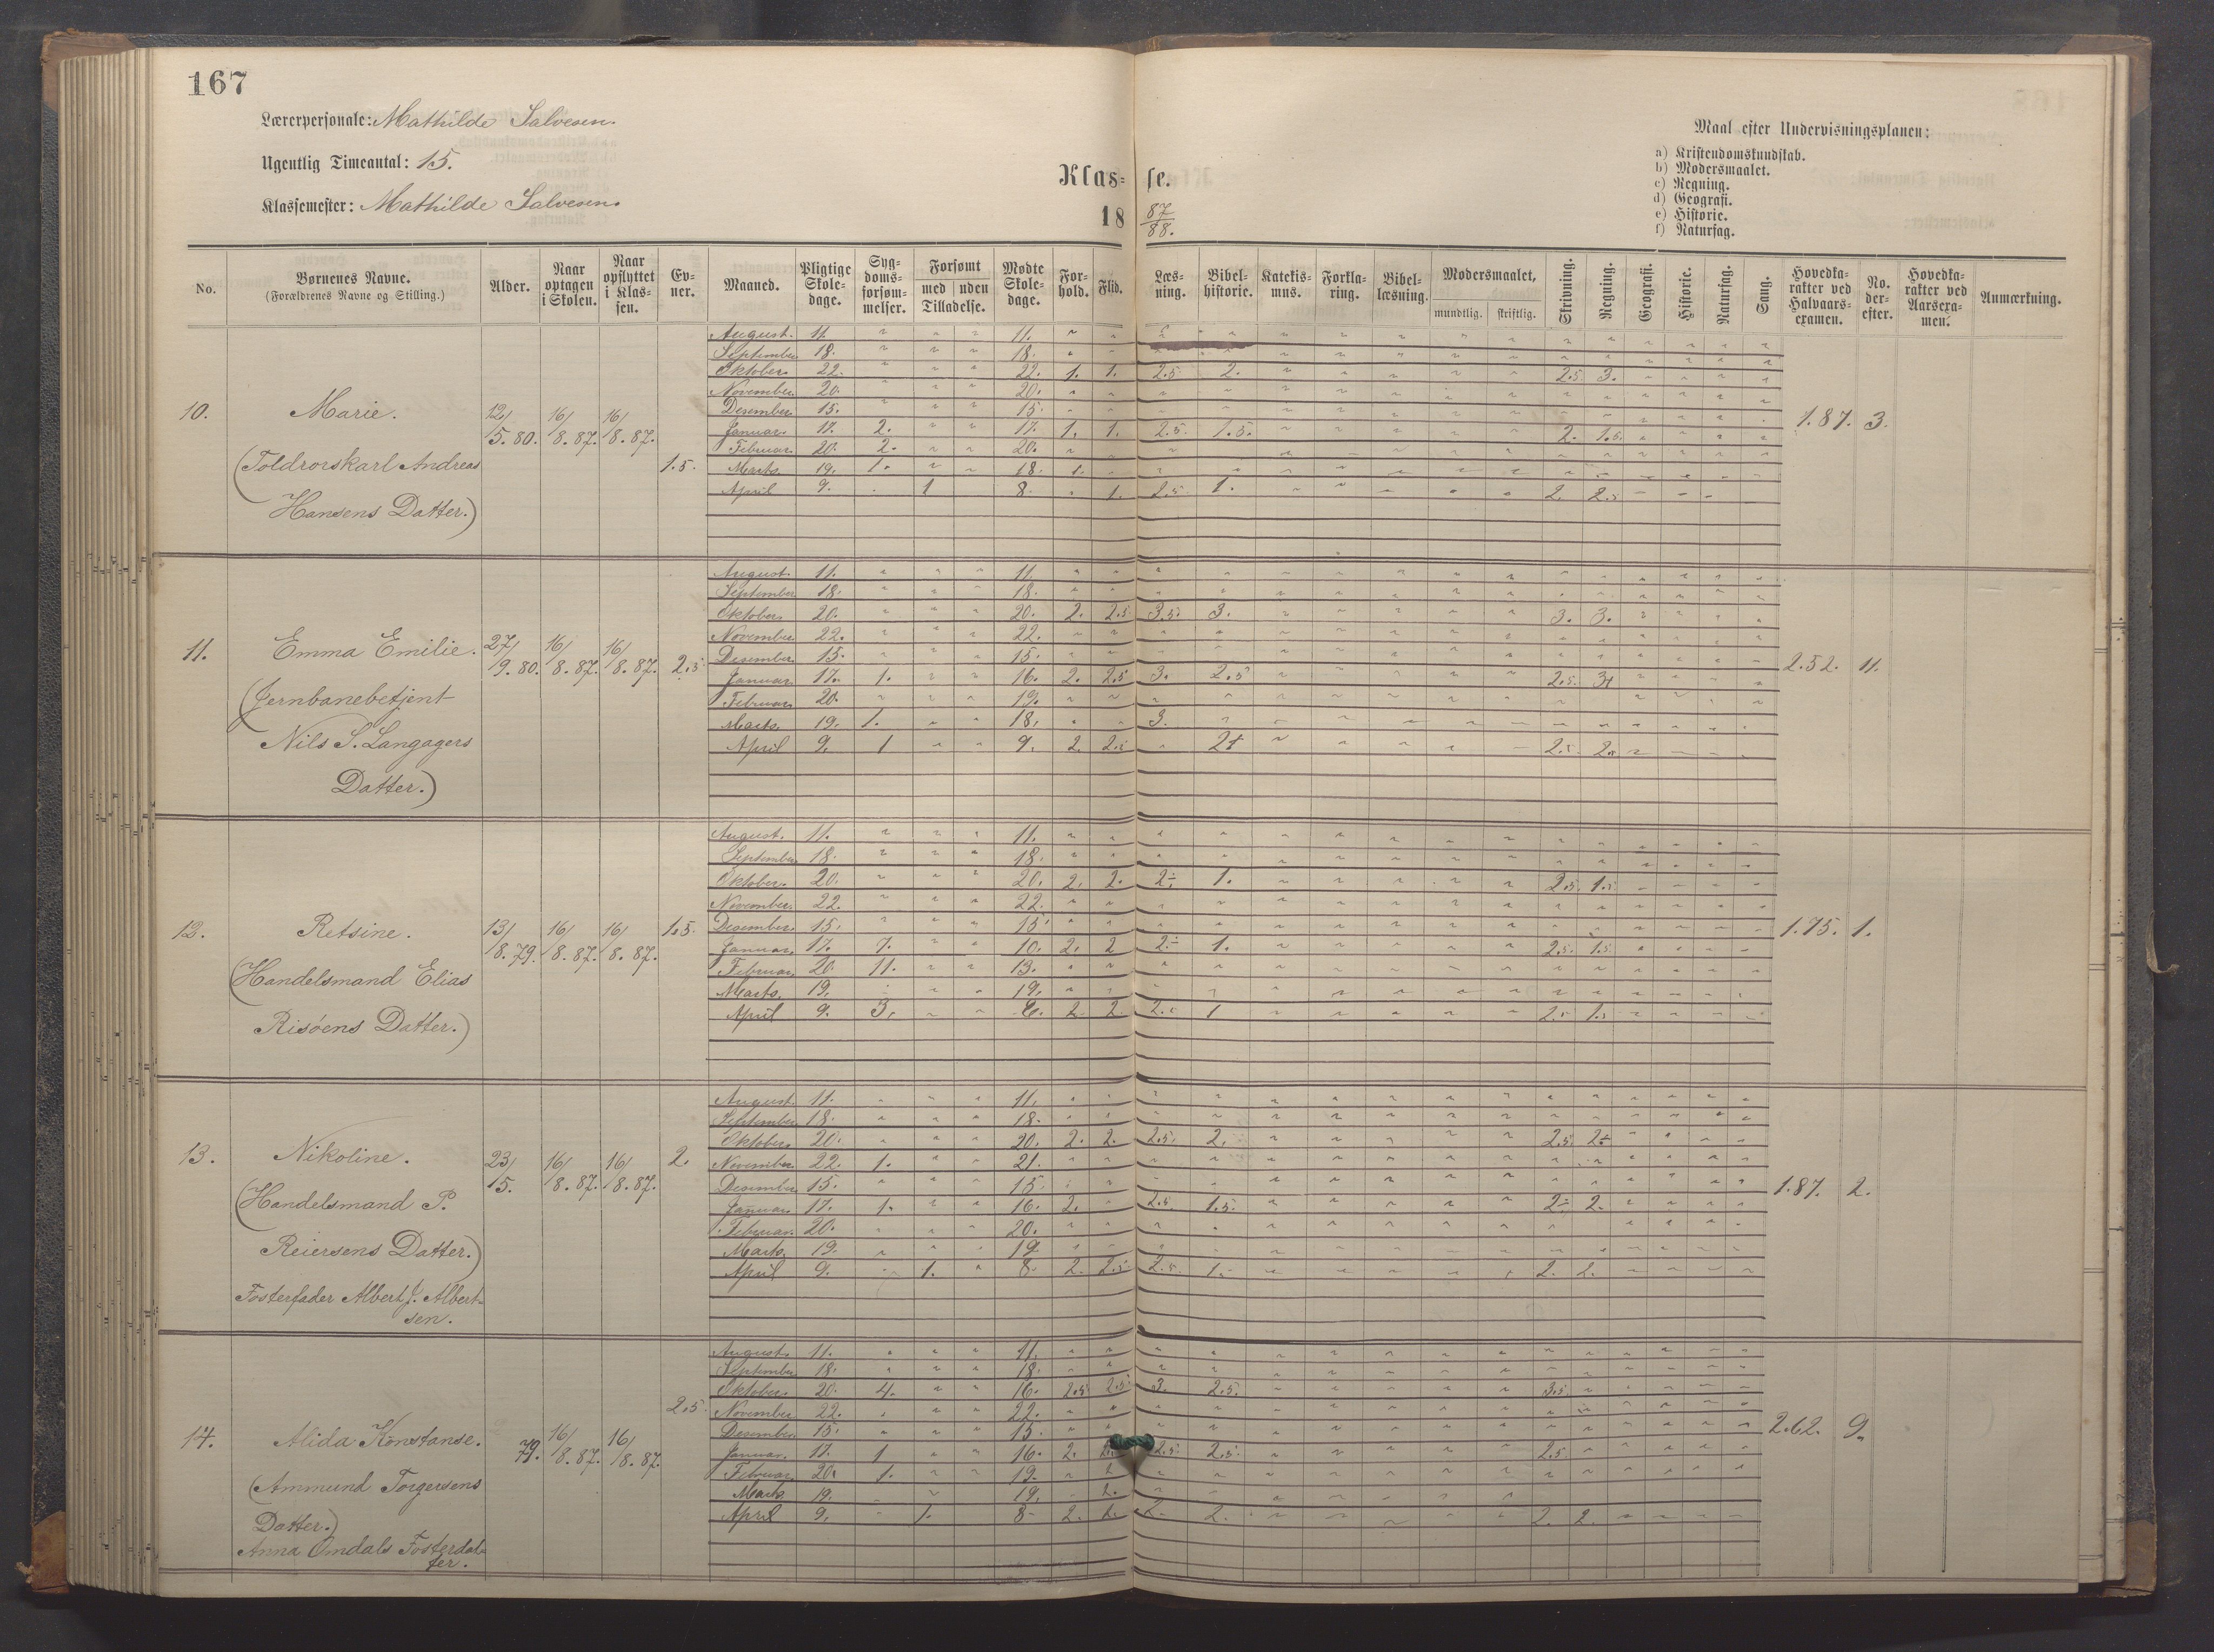 167
Lærerpersonale: Mathilde Salvesen.
Ugentlig Timeantal: 15.
Klassemester: Mathilde Salvesen.
Klasse.
18 87/88.
Maal efter Undervisningsplanen:
a) Kristendomskundskab.
b) Modersmaalet.
c) Regning.
d) Geografi.
e) Historie.
f) Naturfag.
No. Børnenes Navne. (Forældrenes Navne og Stilling.) Alder. Naar optagen i Skolen. Naar opflyttet i Klassen. Evner. Maaned. Pligtige Skoledage. Sygdomsforsømmelser. Forsømt med uden Tilladelse. Mødte Skoledage. Forhold. Flid. Læsning. Bibelhistorie. Katekismus. Forklaring. Bibellæsning. Modersmaalet, mundtlig. skriftlig. Skrivning. Regning. Geografi. Historie. Naturfag. Sang. Hovedkarakter ved Halvaarsexamen. No. derefter. Hovedkarakter ved Aarsexamen. Anmærkning.
10. Marie. (Toldrorskarl Andreas Hansens Datter.) 12/5.80. 16/8.87. 16/8.87. 1.5. 1.87. 3.
August. 11. 11.
September 18. 18.
Oktober. 22. 22. 1. 1. 2.5 2. 2.5 3.
November 20. 20.
Desember 15. 15.
Januar. 17. 2. 17. 1. 1. 2.5. 1.5. 2. 1.5.
Februar 20. 2. 20.
Marts. 19. 1. 18. 1.
April 9. 1 8. 1. 2.5. 1. 2. 2.5
11. Emma Emilie. (Jernbanebetjent Nils S. Langagers Datter.) 27/9.80. 16/8.87. 16/8.87. 2.5 2.52. 11.
August. 11. 11.
September 18. 18.
Oktober. 20. 20. 2. 2.5 3.5. 3. 3. 3.
November 22. 22.
Desember 15. 15.
Januar. 17. 1. 16. 2. 2.5 3. 2.5 2.5.
Februar. 20. 19.
Marts. 19. 1. 18. 3.
April 9. 1 9. 2. 2.5 2.5
12. Retsine. (Handelsmand Elias Risøens Datter.) 13/8.79. 16/8.87. 16/8.87. 1.5. 1.75. 1.
August. 11. 11.
September 18. 18.
Oktober. 20. 20. 2. 2. 2÷ 1. 2.5. 1.5.
November. 22. 22.
Desember. 15. 15.
Januar. 17. 7. 10. 2. 2 2÷ 1. 2.5. 1.5.
Februar. 20. 11. 13.
Marts. 19. 19.
April 9. 3. 6. 2. 2. 1 2.5 1.5
13. Nikoline. (Handelsmand P. Reiersens Datter.) Fosterfader Albert J. Albertsen. 23/5. 16/8.87. 16/8.87. 2. 1.87. 2.
August. 11. 11.
September 18. 18.
Oktober. 20. 20. 2. 2. 2.5. 2. 2.5.
November. 22. 1. 21.
Desember 15. 15.
Januar. 17. 1. 16. 2. 2.5. 1.5. 2÷ 2.
Februar. 20. 20.
Marts. 19. 19
April 9. 1. 8. 2. 2.5 2.5. 2. 2.
14. Alida Konstanse. (Ammund Torgersens Datter.) Anna Omdals Fosterdatter. 79. 16/8.87. 16/8.87. 2.5. 2.62. 9.
August. 11. 11.
September 18. 18.
Oktober. 20. 4. 16. 2.5 2.5 3. 2.5. 3.5.
November 22. 22.
Desember 15. 15.
Januar. 17. 1 16. 2. 2.5. 2.5. 2.5
Februar. 20. 1. 19. 2
Marts 19. 19. 2.
April 9. 1. 8 2. 2. 2. 2. 2. 2.